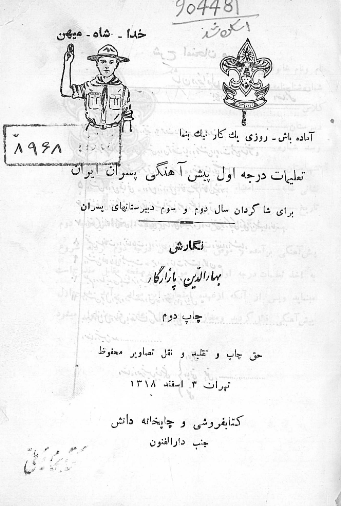 904481
اسکن شد
خدا - شاه - میهن
آماده باش - روزی یك كار نیك بنما
۸۹۶۸
تعلیمات درجه اول پیش آهنگی پسران ایران
برای شاگردان سال دوم و سوم دبیرستانهای پسران
نگارش
بهاءالدین پازارگار
چاپ دوم
حق چاپ و تقلید و نقل تصاویر محفوظ
تهران ۳ اسفند ۱۳۱۸
کتابفروشی و چاپخانه دانش
جنب دارالفنون